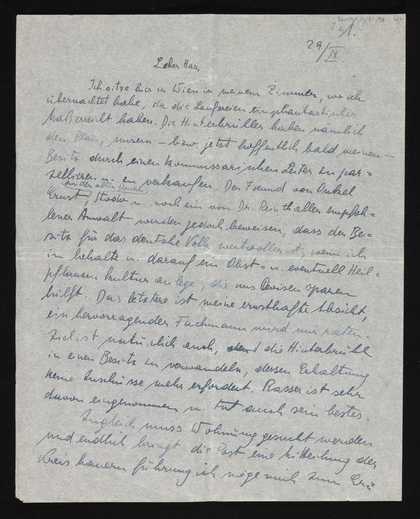 29/IV
Lieber Hans,
Ich sitze hier in Wien in meinem Zimmer, wo ich
übernachtet habe, da die Laufereien ein phantastisches
Maß erreicht haben. Die Hinterbrühler haben nämlich
den Plan, unsern – bzw. jetzt hoffentlich bald meinen –
Besitz durch einen kommissarischen Leiter zu par-
zellieren u. zu verkaufen. Der Freund von Onkel
Ernst u. noch ein von Dr. empfoh-
lener Anwalt werden jedoch beweisen, dass der Be-
sitz für das deutsche Volk wertvoller ist, wenn ich
ihn behalte u. darauf ein Obst- u. eventuell Heil-
pflanzenkultur anlege, die uns Devisen sparen
hilft. Das letztere ist meine ernsthafte Absicht,
ein hervorragender Fachmann wird mir raten.
Ziel ist natürlich auch, die Hinterbrühl
in einen Besitz zu verwandeln, dessen Erhaltung
keine Zuschüsse mehr erfordert. Rasser ist sehr
davon eingenommen u. tut auch sein bestes.
Zugleich muss Wohnung gesucht werden
und endlich bringt die Post eine Mitteilung der
Kreisbauernführung ich möge mich zum